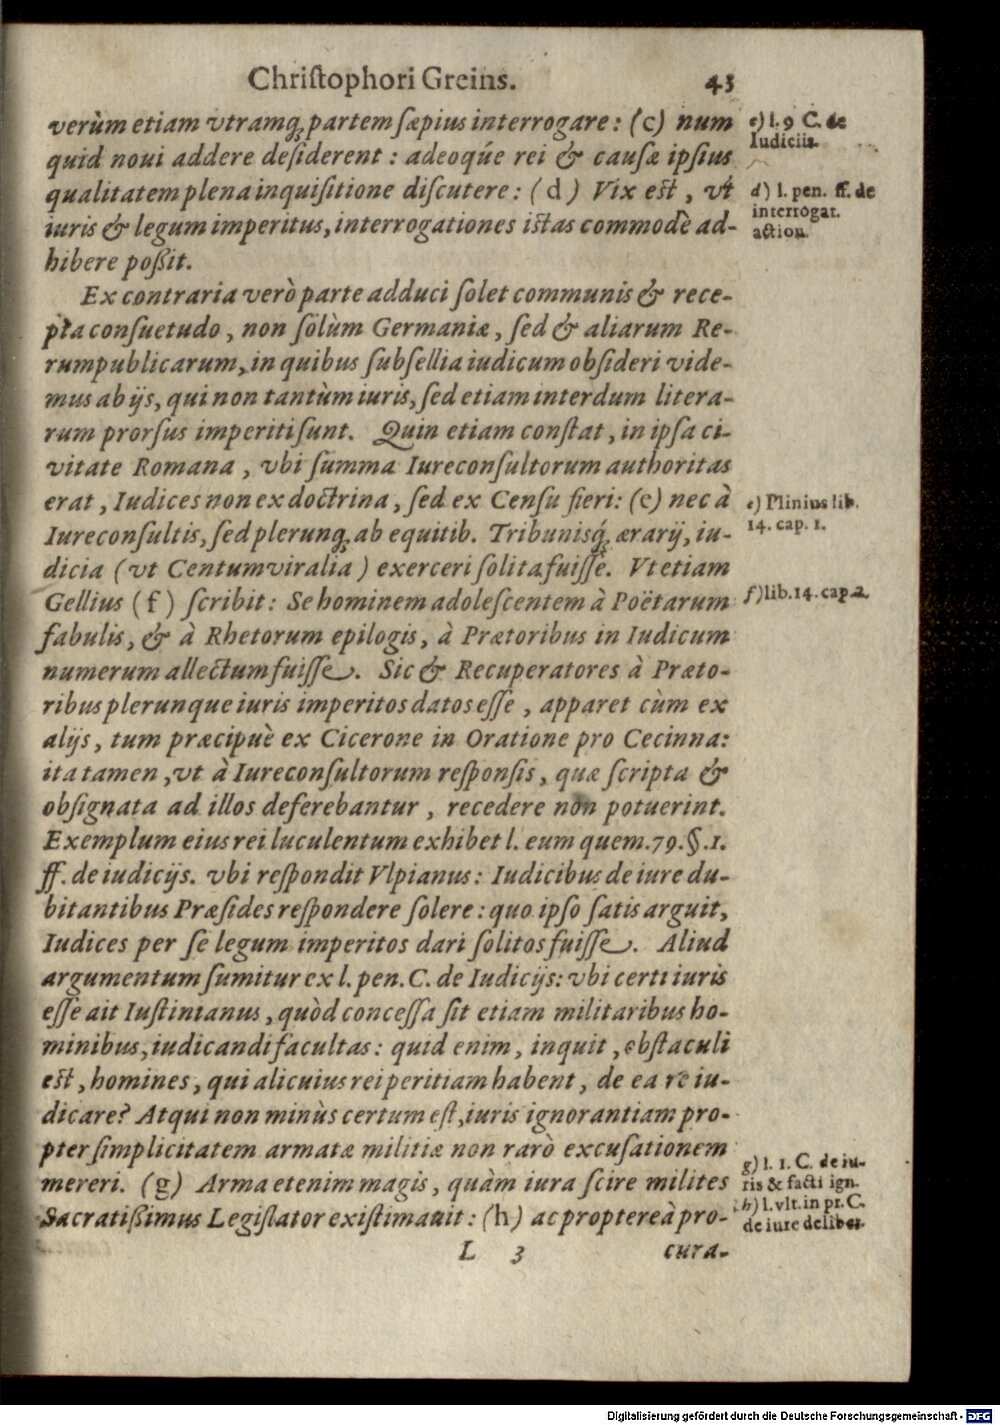 Chriſtophori Greins. 43
verùm etiam vtramq́; partem ſæpius interrogare: (c) num
quid noui addere deſiderent: adeoq́ue rei & cauſæ ipſius
qualitatem plena inquiſitione diſcutere: (d) Vix eſt, vt
iuris & legum imperitus, interrogationes iſtas commodè ad-
hibere poßit.
c) l. 9 C. de
Iudiciis.
d) l. pen. ff. de
interrogat.
action.
Ex contraria verò parte adduci ſolet communis & rece-
pta conſuetudo, non ſolùm Germaniæ, ſed & aliarum Re-
rumpublicarum, in quibus ſubſellia iudicum obſideri vide-
mus ab ijs, qui non tantùm iuris, ſed etiam interdum litera-
rum prorſus imperiti ſunt. Quin etiam conſtat, in ipſa ci-
vitate Romana, vbi ſumma Iureconſultorum authoritas
erat, Iudices non ex doctrina, ſed ex Cenſu fieri: (e) nec à
Iureconſultis, ſed plerunq́; ab equitib. Tribunisq́; ærarij, iu-
dicia (vt Centumviralia) exerceri ſolita fuiſſe. Vt etiam
Gellius (f) ſcribit: Se hominem adoleſcentem à Poëtarum
fabulis, & à Rhetorum epilogis, à Prætoribus in Iudicum
numerum allectum fuiſſe. Sic & Recuperatores à Præto-
ribus plerunque iuris imperitos datos eſſe, apparet cùm ex
alijs, tum præcipuè ex Cicerone in Oratione pro Cecinna:
ita tamen, vt à Iureconſultorum reſponſis, quæ ſcripta &
obſignata ad illos deferebantur, recedere non potuerint.
Exemplum eius rei luculentum exhibet l. eum quem. 79. §. 1.
ff. de iudicijs. vbi reſpondit Vlpianus: Iudicibus de iure du-
bitantibus Præſides reſpondere ſolere: quo ipſo ſatis arguit,
Iudices per ſe legum imperitos dari ſolitos fuiſſe. Aliud
argumentum ſumitur ex l. pen. C. de Iudicijs: vbi certi iuris
eſſe ait Iuſtinianus, quòd conceſſa ſit etiam militaribus ho-
minibus, iudicandi facultas: quid enim, inquit, obſtaculi
eſt, homines, qui alicuius rei peritiam habent, de ea re iu-
dicare? Atqui non minùs certum eſt, iuris ignorantiam pro-
pter ſimplicitatem armatæ militiæ non rarò excuſationem
mereri. (g) Arma etenim magis, quàm iura ſcire milites
Sacratißimus Legiſlator exiſtimauit: (h) ac proptereà pro-
e) Plinius lib.
14. cap. 1.
f) lib. 14. cap. 2.
g) l. 1. C. de iu-
ris & facti ign.
h) l. vlt. in pr. C.
de iure deliber.
L 3 cura-
Digitalisierung gefördert durch die Deutsche Forschungsgemeinschaft - DFG